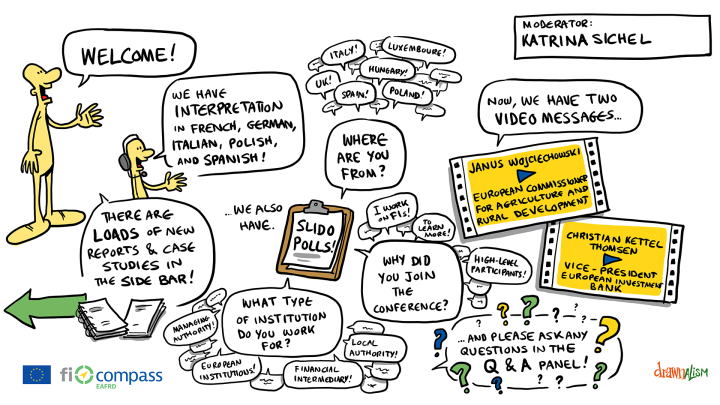 WELCOME!
WE HAVE
INTERPRETATION
IN FRENCH, GERMAN,
ITALIAN, POLISH,
AND SPANISH!
THERE ARE
LOADS OF NEW
REPORTS & CASE
STUDIES IN
THE SIDE BAR!
ITALY!
LUXEMBOURG!
UK!
HUNGARY!
SPAIN!
POLAND!
WHERE
ARE YOU
FROM?
...WE ALSO
HAVE..
SLIDO
POLLS!
I WORK
ON FIs!
TO
LEARN
MORE!
HIGH-LEVEL
PARTICIPANTS!
WHY DID
YOU JOIN
THE
CONFERENCE?
WHAT TYPE
OF INSTITUTION
DO YOU WORK
FOR?
MANAGING
AUTHORITY!
EUROPEAN
INSTITUTIONS!
FINANCIAL
INTERMEDIARY!
LOCAL
AUTHORITY!
MODERATOR:
KATRINA SICHEL
NOW, WE HAVE TWO
VIDEO MESSAGES...
JANUS WOJCIECHOWSKI
EUROPEAN COMMISSIONER
FOR AGRICULTURE AND
RURAL DEVELOPMENT
CHRISTIAN KETTEL
THOMSEN
VICE-PRESIDENT
EUROPEAN INVESTMENT
BANK
...AND PLEASE ASK ANY
QUESTIONS IN THE
Q & A PANEL!
? ? ? ? ? ? ? ? ? ? ? ?
fi compass
EAFRD
drawnalism